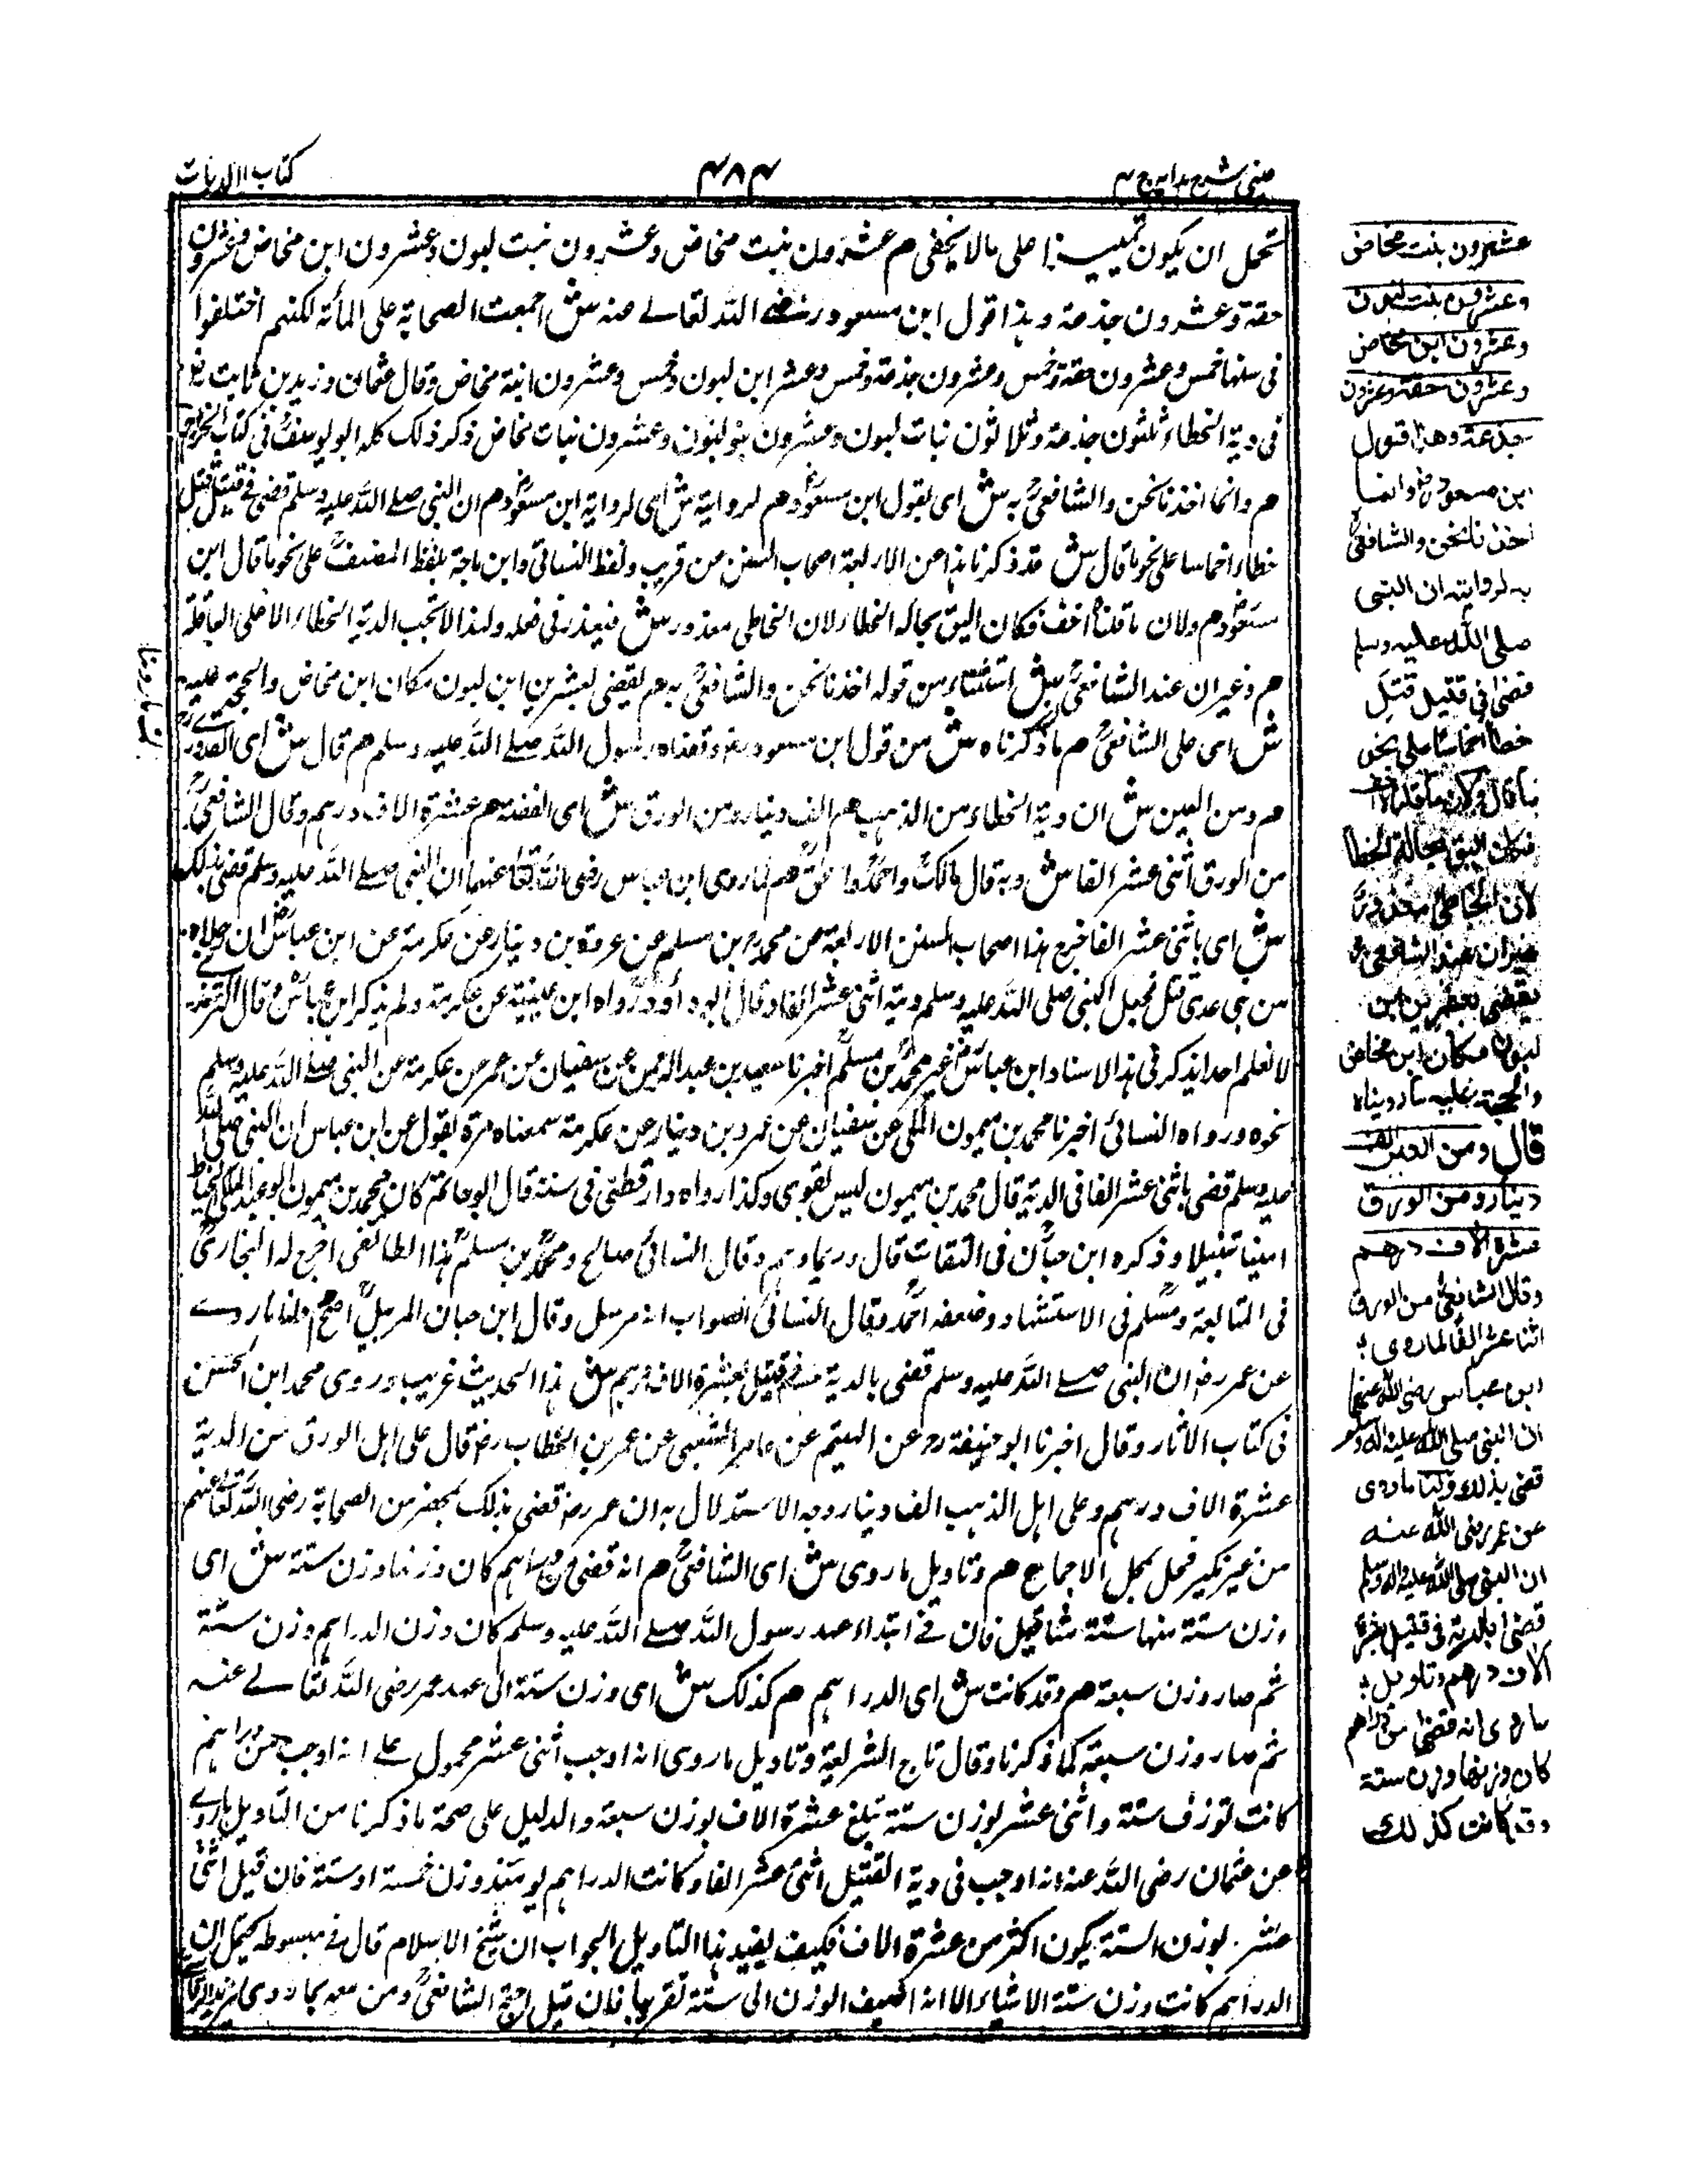 عینی شرح هدایه ج ۴
۴۸۴
کتاب الدیات
تحمل ان یکون تمییزا علی مالا یخفی م عشرون بنت مخاض وعشرون بنت لبون وعشرون ابن مخاض وعشرون
حقة وعشرون جذعة وهذا قول ابن مسعود رضی الله تعالے عنه ش اجمعت الصحابة علی المائة لکنهم اختلفوا
فی سنها خمس وعشرون حقة وخمس وعشرون جذعة وخمس وعشر ابن لبون وخمس وعشرون ابنة مخاض وقال عثمان وزید بن ثابت
فی دیة الخطاء ثلثون جذعة وثلاثون بنات لبون وعشرون بنو لبون وعشرون بنات مخاض ذکر ذلک کله ابو یوسف فی کتاب الخراج
هم وانما اخذنا نحن والشافعی به ش ای بقول ابن مسعود هم لروایة ش ای لروایة ابن مسعود هم ان النبی صلے الله علیه وسلم قضی فی قتیل قتل
خطاء اخماسا علی نحو ما قال ش قد ذکرنا هذا عن الاربعة اصحاب السنن من قریب ولفظ النسائی وابن ماجة بلفظ المصنف علی نحو ما قال ابن
مسعود هم ولان ما قلنا اخف فکان الیق بحالة الخطاء لان الخاطی معذور ش فیعذر فی فعله ولهذا لا تجب الدیة الخطاء الا علی العاقلة
هم وغیر ان عند الشافعی ش استثناء من قوله اخذنا نحن والشافعی به هم یقضی بعشرین ابن لبون مکان ابن مخاض والحجة علیه
ش ای علی الشافعی هم ما ذکرناه ش من قول ابن مسعود رضه وقضاء رسول الله صلے الله علیه وسلم هم قال ش ای القدوری
هم ومن العین ش ان دیة الخطاء من الذهب هم الف دینار ومن الورق ش ای الفضة هم عشرة الاف درهم وقال الشافعی
من الورق اثنی عشر الفا ش وبه قال مالک واحمد واسحق هم لما روی ابن عباس رضی الله تعالی عنهما ان النبی صلے الله علیه وسلم قضی بذلک
ش ای باثنی عشر الفا خرج هذا اصحاب السنن الاربعة عن محمد بن مسلم عن عروة بن دینار عن عکرمة عن ابن عباس ان رجلا
من بنی عدی قتل فجعل النبی صلی الله علیه وسلم دیة اثنی عشر الفا وقال ابو داود رواه ابن عیینة عن عکرمة ولم یذکر ابن عباس وقال الترمذی
لا نعلم احدا یذکر فی هذا الاسناد ابن عباس غیر محمد بن مسلم اخبرنا سعید بن عبد الرحمن عن سفیان عن عمر عن عکرمة عن النبی صلے الله علیه وسلم
نحوه ورواه النسائی اخبرنا محمد بن میمون المکی عن سفیان عن عمرو بن دینار عن عکرمة سمعناه مرة یقول عن ابن عباس ان النبی صلی الله
علیه وسلم قضی باثنی عشر الفا فی الدیة قال محمد بن میمون لیس بقوی وکذا رواه دارقطنی فی سننه قال ابو حاتم کان محمد بن میمون ابو عبد الله المکی الخیاط
امیا مغفلا وذکره ابن حبان فی الثقات قال وربما وهم وقال النسائی صالح ومحمد بن مسلم هذا الطائفی اخرج له البخاری
فی المتابعة ومسلم فی الاستشهاد وضعفه احمد وقال النسائی الصواب انه مرسل وقال ابن حبان المرسل اصح هم ولنا ما روے
عن عمر رضه ان النبی صلے الله علیه وسلم قضی بالدیة فی قتیل بعشرة الاف درهم ش هذا الحدیث غریب وروی محمد ابن الحسن
فی کتاب الاثار وقال اخبرنا ابو حنیفة رح عن الهیثم عن عامر الشعبی عن عمر بن الخطاب رضه قال علی اهل الورق من الدیة
عشرة الاف درهم وعلی اهل الذهب الف دینار وجه الاستدلال به ان عمر رضه قضی بذلک بمحضر من الصحابة رضی الله تعالی عنهم
من غیر نکیر فحل محل الاجماع هم وتاویل ما روی ش ای الشافعی هم انه قضی من دراهم کان وزنها وزن ستة ش ای
وزن ستة منها ستة مثاقیل فان فے ابتداء عهد رسول الله صلے الله علیه وسلم کان وزن الدراهم وزن ستة
ثم صار وزن سبعة هم وقد کانت ش ای الدراهم هم کذلک ش ای وزن ستة الی عهد عمر رضی الله تعالے عنه
ثم صار وزن سبعة کما ذکرنا وقال تاج الشریعة وتاویل ما روی انه اوجب اثنی عشر محمول علے انه اوجب من دراهم
کانت توزن ستة واثنی عشر بوزن ستة تبلغ عشرة الاف بوزن سبعة والدلیل علی صحة ما ذکرنا من التاویل ما روے
عن عثمان رضی الله عنه انه اوجب فی دیة القتیل اثنی عشر الفا وکانت الدراهم یومئذ وزن خمسة او ستة فان قیل اثنی
عشر بوزن الستة یکون اکثر من عشرة الاف فکیف یفید هذا التاویل الجواب ان شیخ الاسلام قال فے مبسوطه یحتمل ان
الدراهم کانت وزن ستة الا شیاء الا انه اضیف الوزن الی ستة تقریبا فان قیل احتج الشافعی ومن معه بما روی
عشرون بنت مخاض
وعشرون بنت لبون
وعشرون ابن مخاض
وعشرون حقة وعشرون
جذعة وهذا قول
ابن مسعود رض وانما
اخذنا نحن والشافعی
به لروایته ان النبی
صلی الله علیه وسلم
قضی فی قتیل قتل
خطأ اخماسا علی نحو
ما قال ولان ما قلناه اخف
فکان الیق بحالة الخطا
لان الخاطی معذور
غیر ان عند الشافعی
یقضی بعشرین ابن
لبون مکان ابن مخاض
والحجة علیه ما رویناه
قال ومن العین الف
دینار ومن الورق
عشرة الاف درهم
وقال الشافعی من الورق
اثنا عشر الفا لما روی
ابن عباس رضی الله عنهما
ان النبی صلی الله علیه واله وسلم
قضی بذلک ولنا ما روی
عن عمر رضی الله عنه
ان النبی صلی الله علیه واله وسلم
قضی بالدیة فی قتیل بعشرة
الاف درهم وتاویل
ما روی انه قضی من دراهم
کان وزنها وزن ستة
وقد کانت کذلک